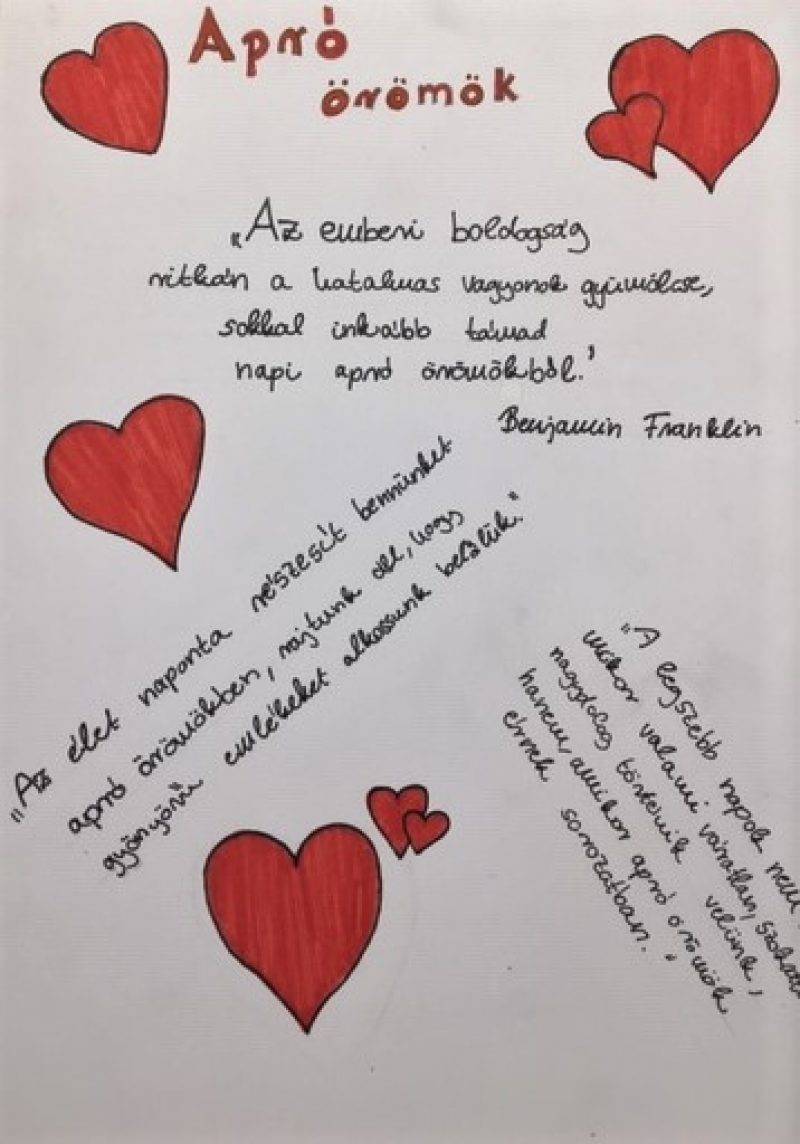 Apró
örömök
„Az emberi boldogság
ritkán a hatalmas vagyonok gyümölcse,
sokkal inkább támad
napi apró örömökből.”
Benjamin Franklin
„Az élet naponta részesít bennünket
apró örömökben, rajtunk áll, hogy
gyönyörű emlékeket alkossunk belőlük.”
„A legszebb napok nem
mikor valami váratlan,
nagydolog történik velünk,
hanem, amikor apró örömök
érnek sorozatban.”